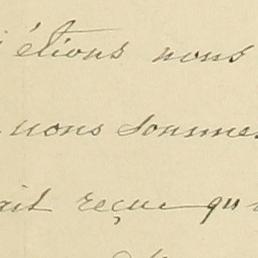 étions nous
nous sommes
ait reçue qu